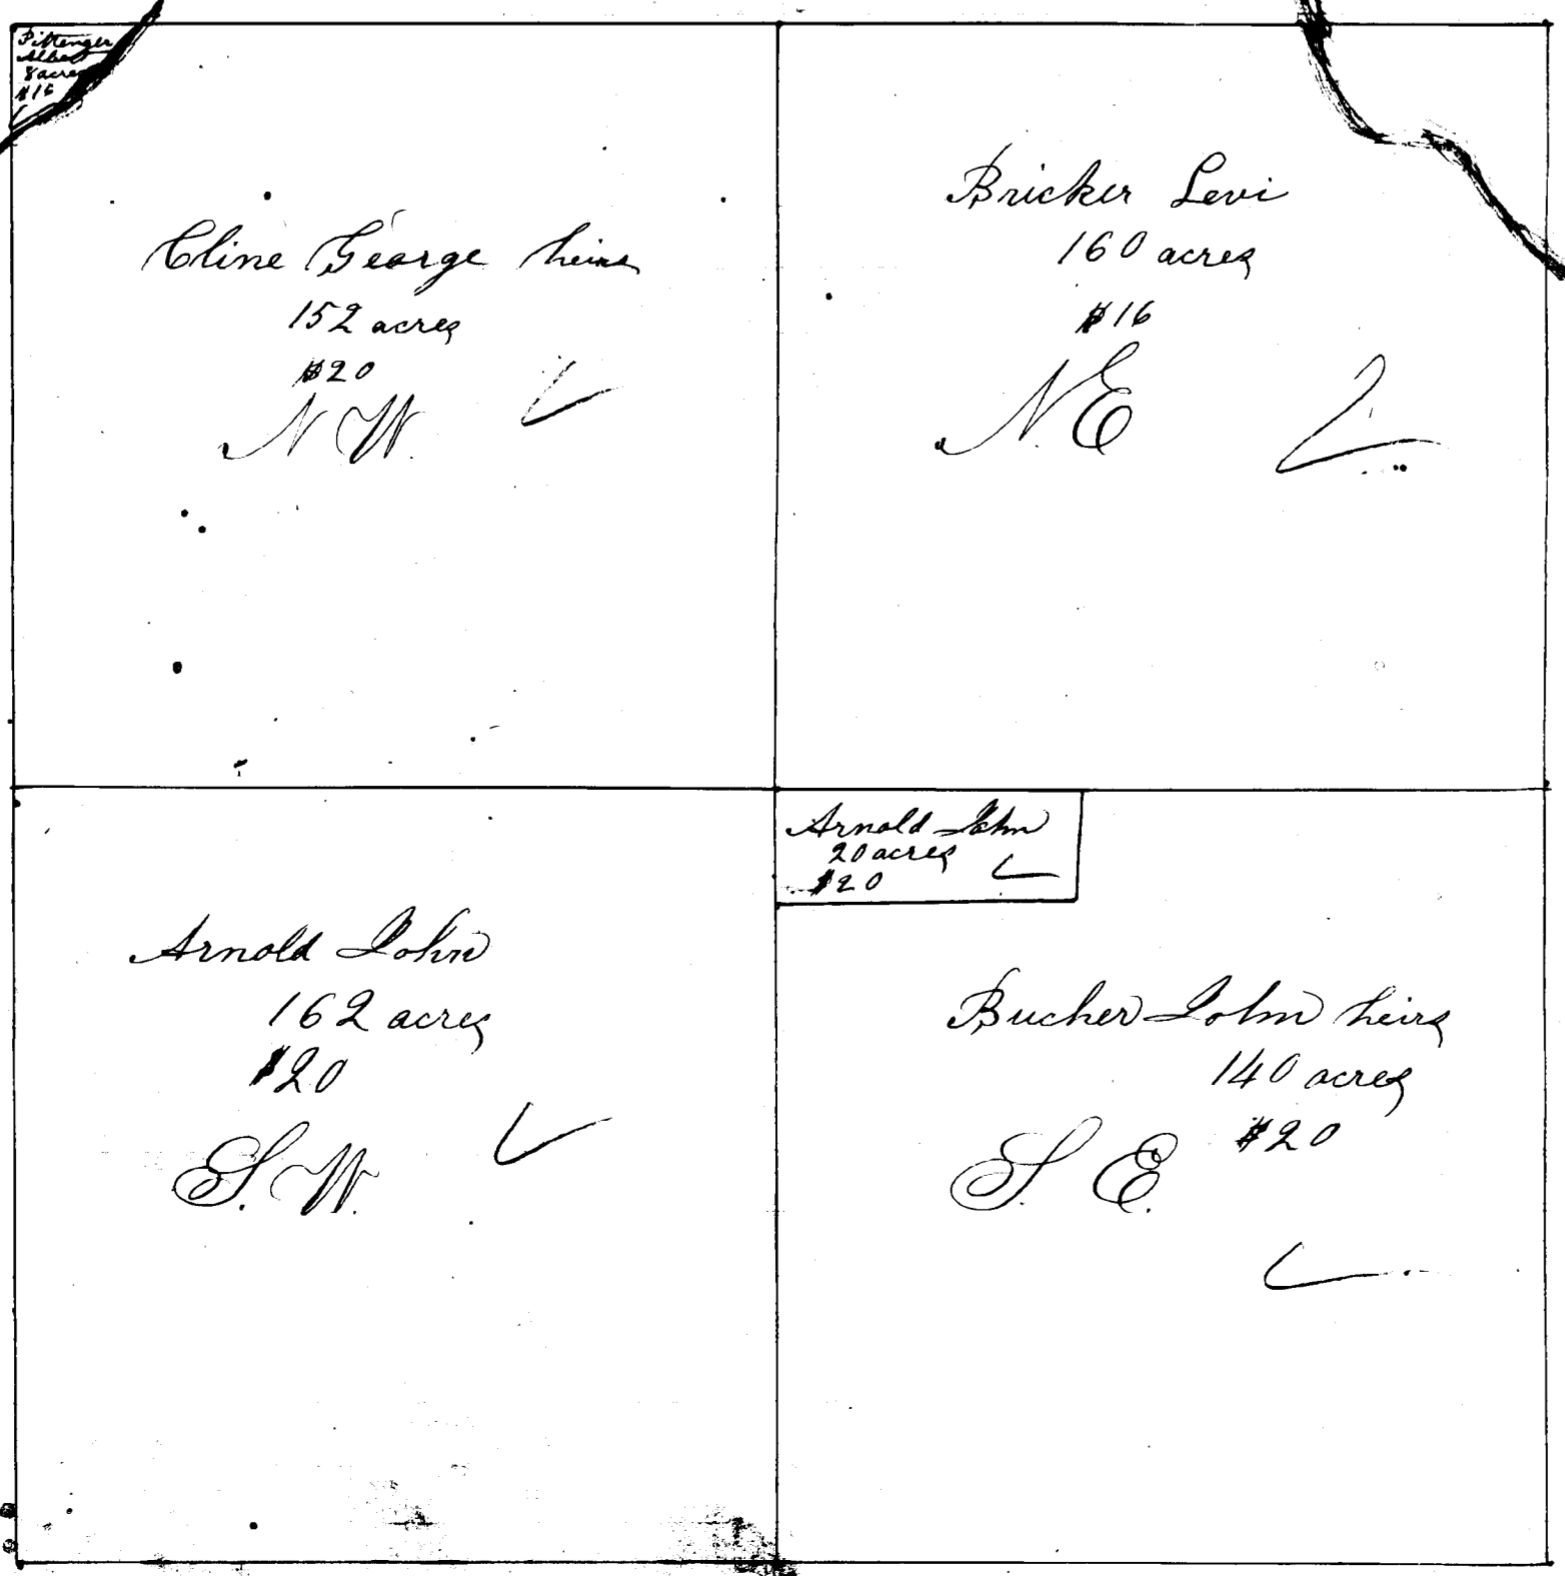 Pittenger
Albert
8 acres
$16
Cline George heirs
152 acres
$20
N W.
Bricker Levi
160 acres
$16
N. E
Arnold John
162 acres
$20
S. W.
Arnold John
20 acres
$20
Bucher John heirs
140 acres
$20
S. E.